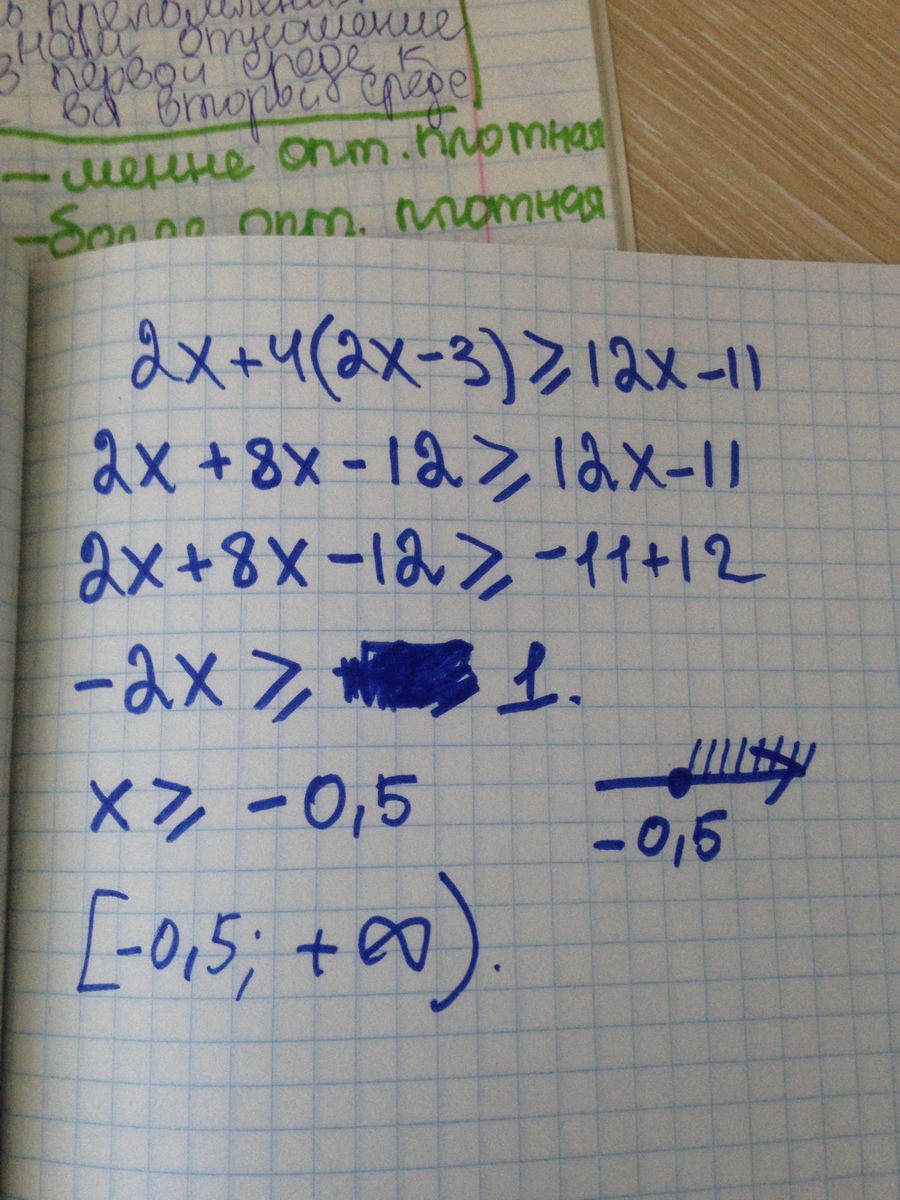 нам отношение
в первой среде к
во второй среде
– менне опт. плотная
– более опт. плотная
2x+4(2x-3)⩾12x-11
2x+8x-12⩾12x-11
2x+8x-12⩾-11+12
-2x⩾ 1.
x⩾-0,5
-0,5
[-0,5; +∞).